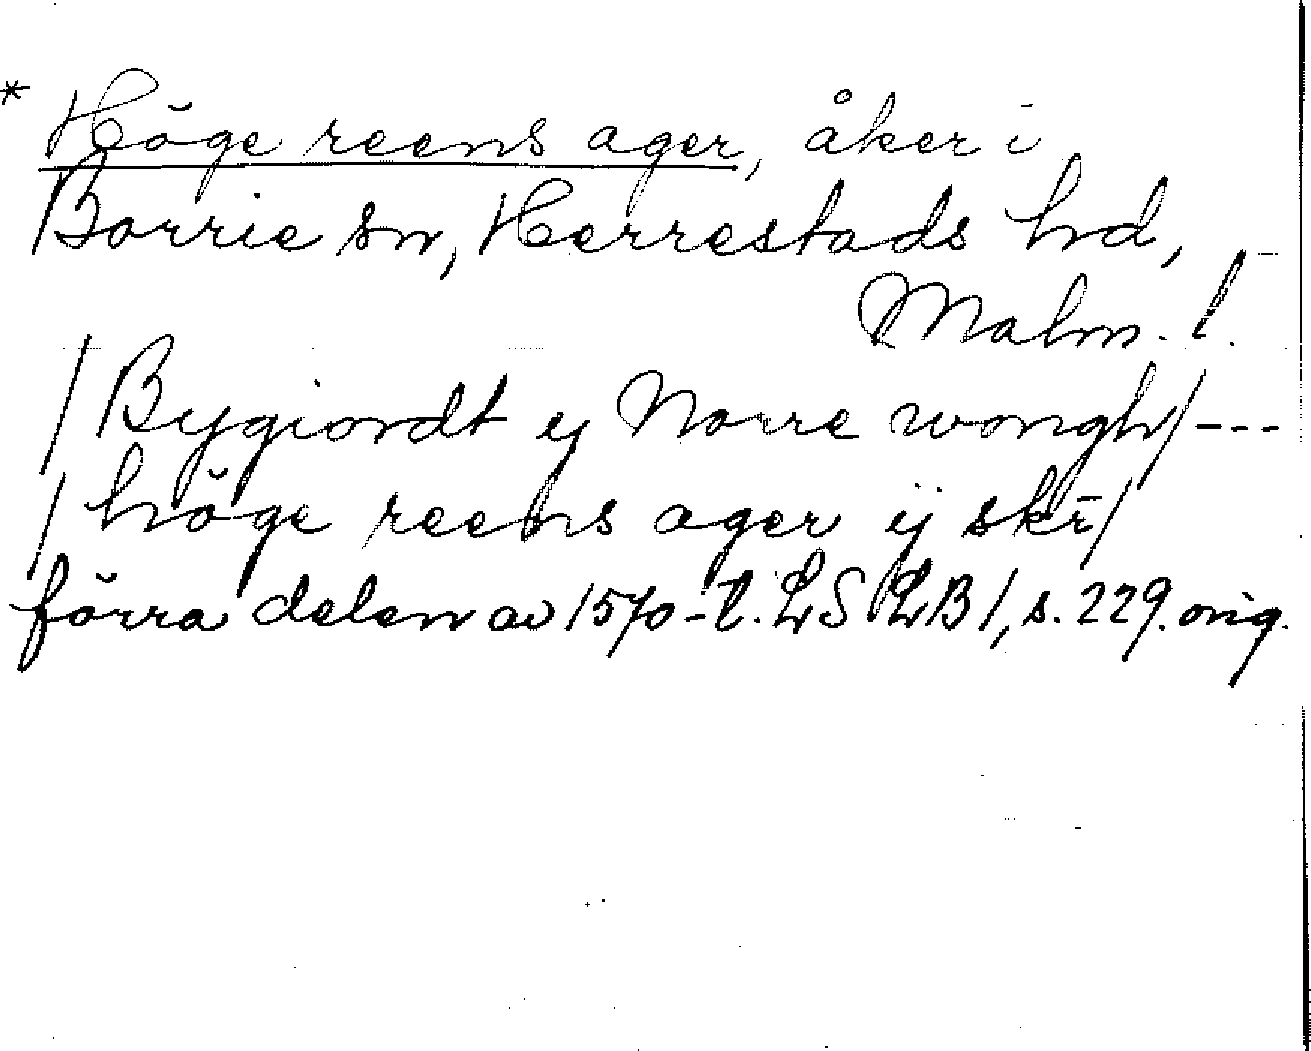 * Höge reens ager, åker i
Borrie sn, Herrestads hd,
Malm. l.
/ Bygiordt ij Norre wongh / ---
/ höge reens ager ij skī /
förra delen av 1570-t. LS LB 1, s. 229. orig.